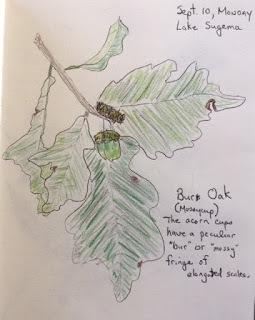 Sept. 10, Monday
Lake Sugema
Bur Oak
(Mossycup)
The acorn cups
have a peculiar
"bur" or "mossy"
fringe of
elongated scales.